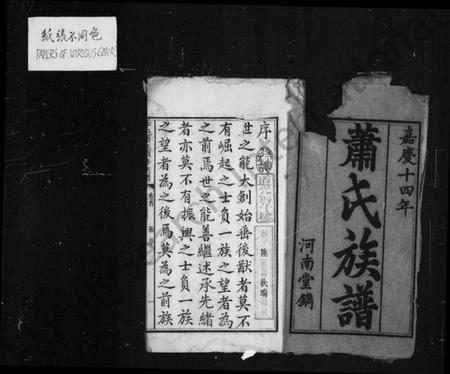 紙張不同色
PAPERS OF VARIOUS COLORS
嘉慶十四年
蕭氏族譜
河南堂鐫
序
世之能大創始垂後猷者莫不
有崛起之士負一族之望者為
之前焉世之能善繼述承先緒
者亦莫不有振興之士負一族
之望者為之後焉莫為之前族